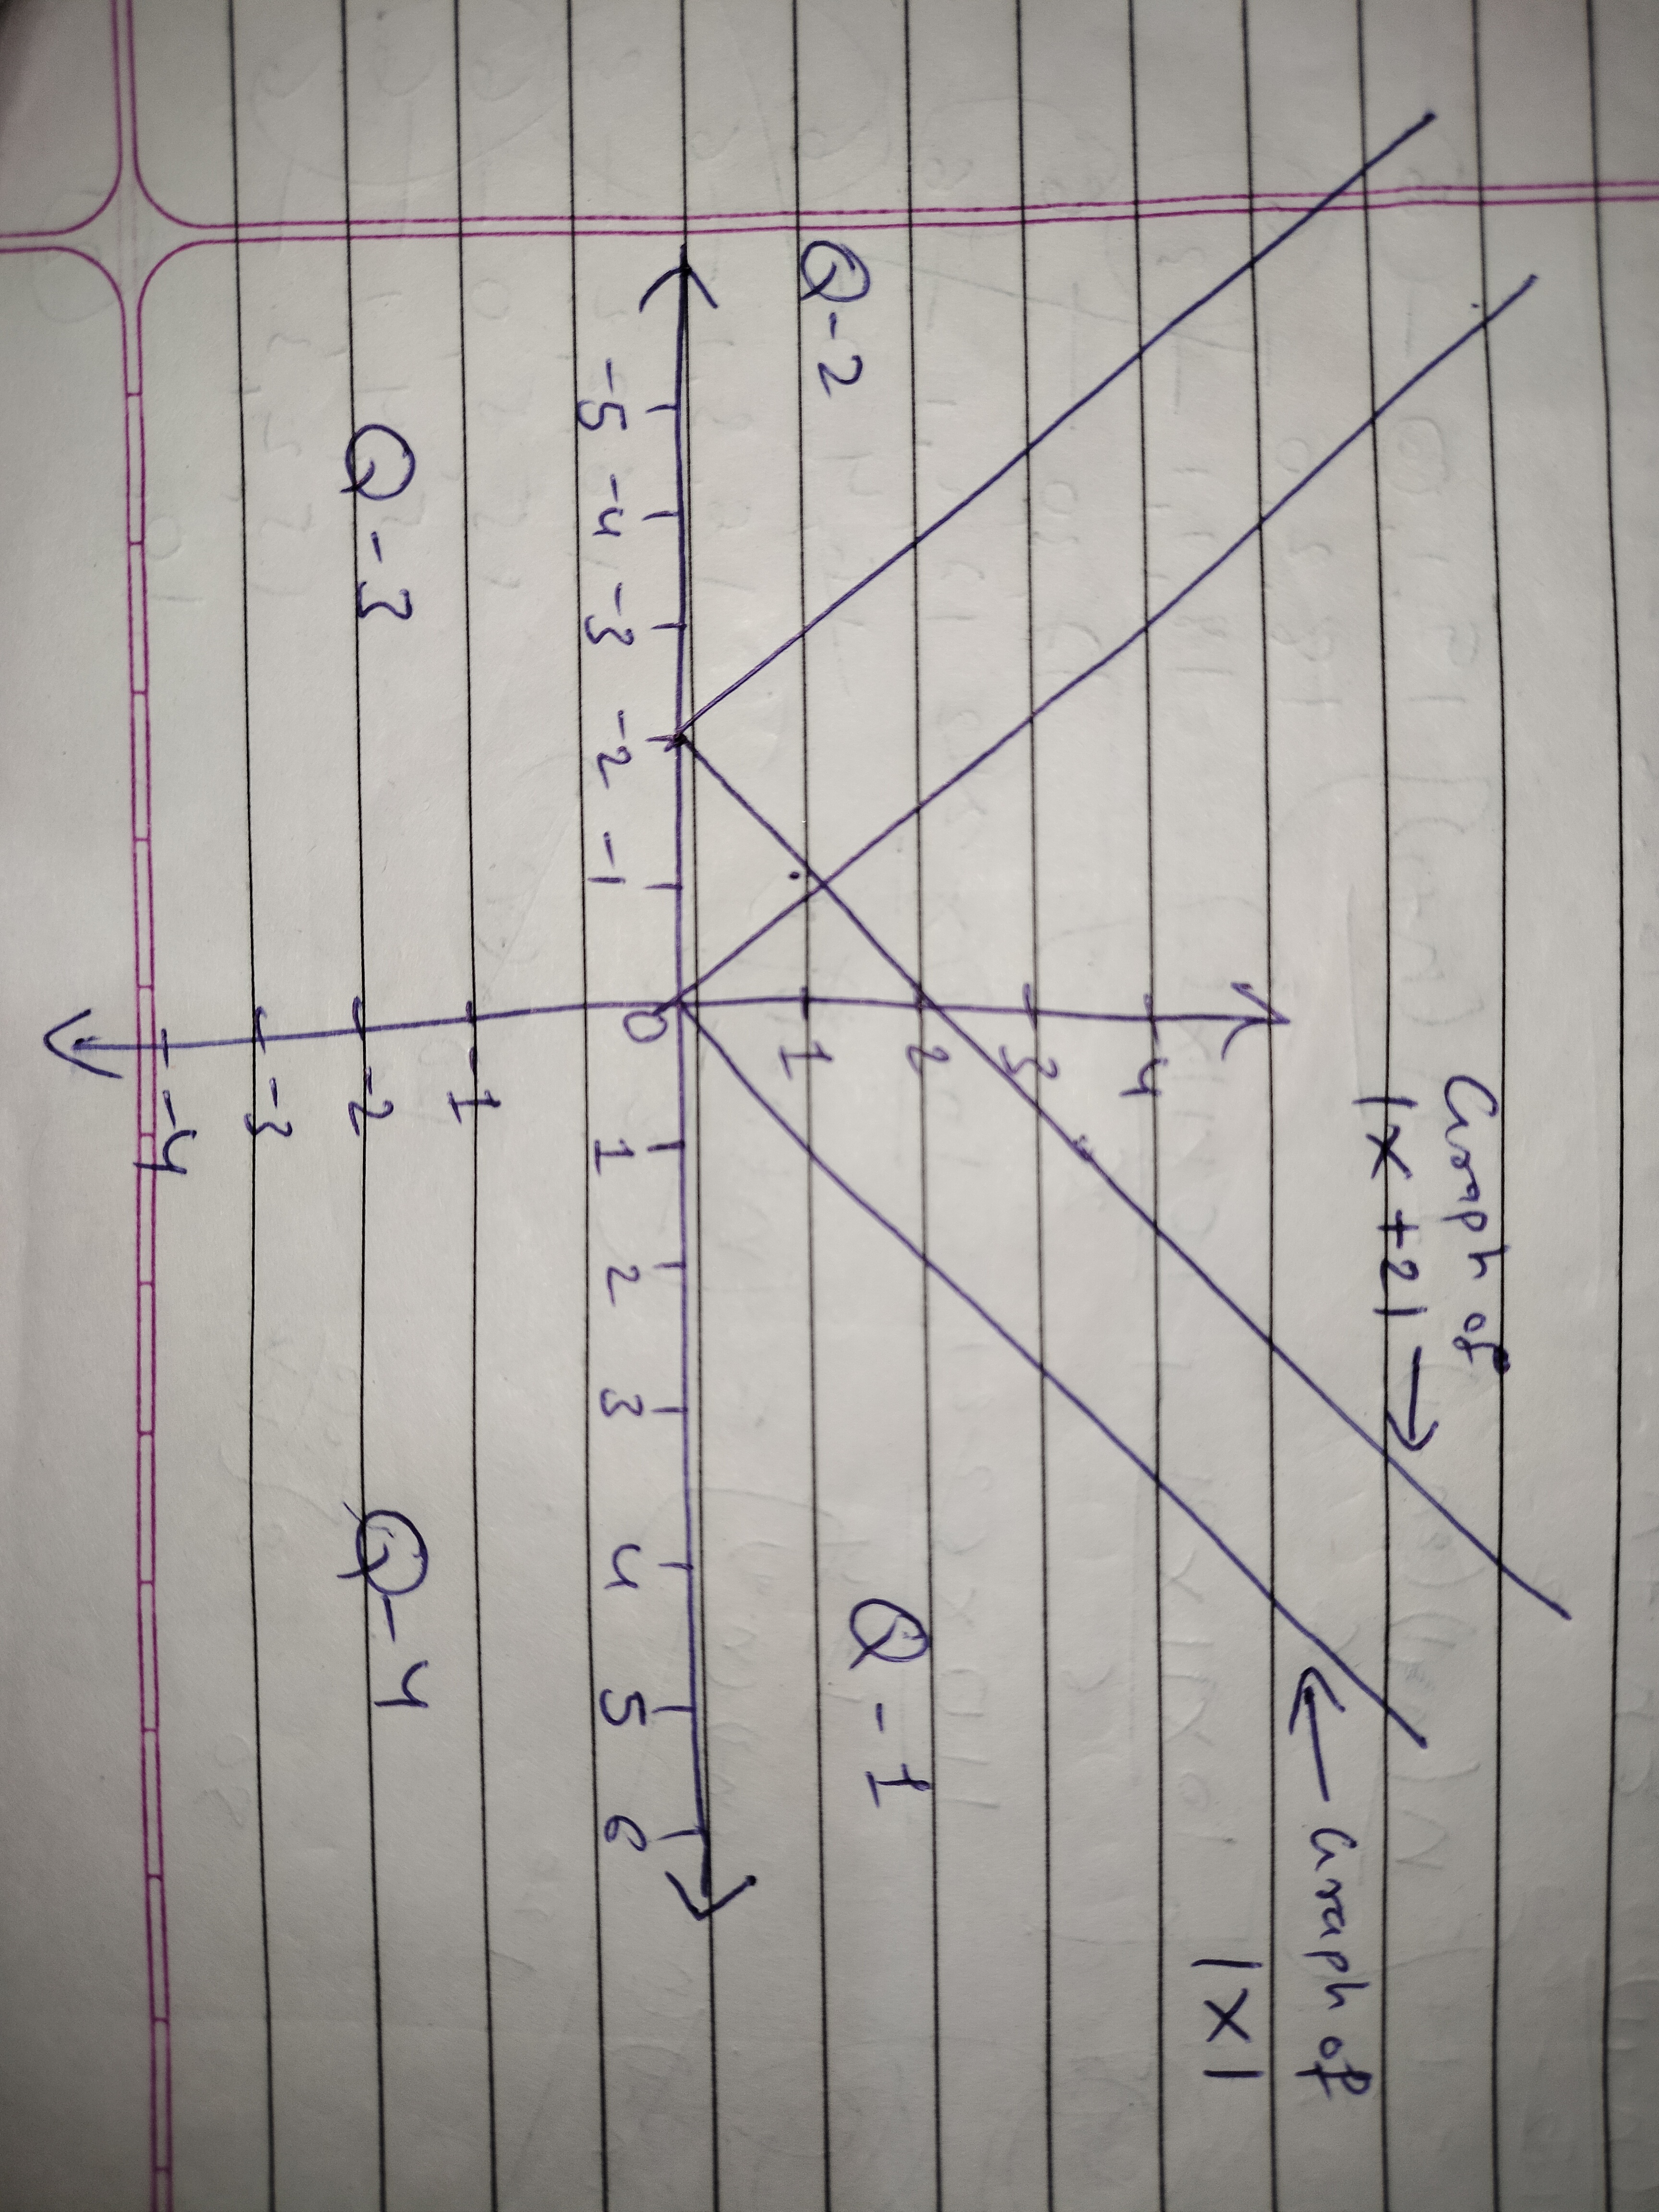 Graph of
|x+2| →
← Graph of
|x|
4
3
2
1
Q-2
Q-1
-5 -4 -3 -2 -1 0 1 2 3 4 5 6
-1
-2
-3
-4
Q-3
Q-4